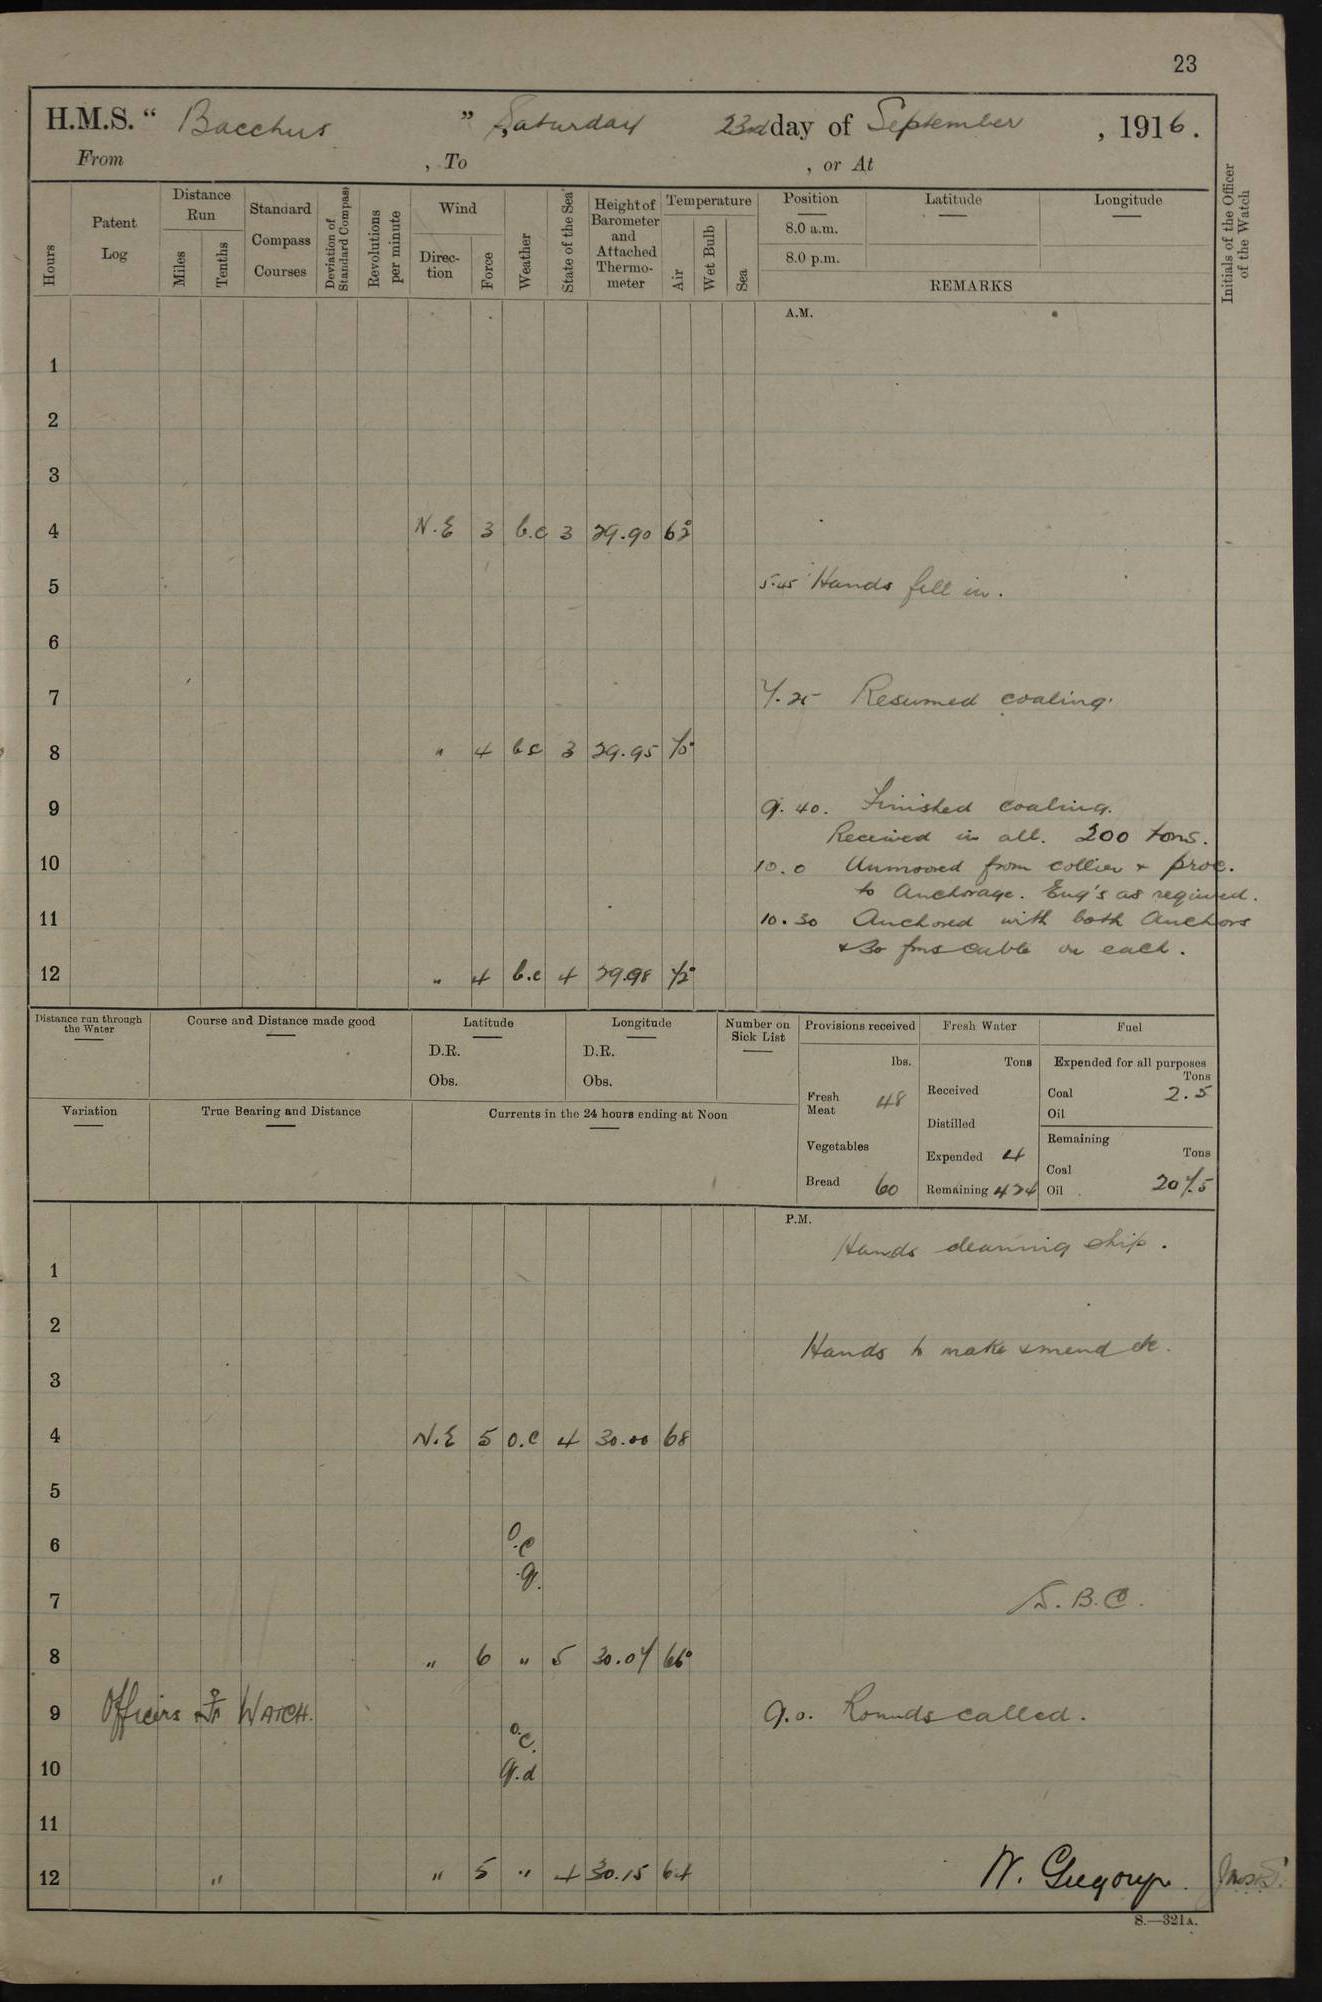 23
H.M.S. “ Bacchus ” Saturday 23rd day of September , 1916.
From , To , or At
Hours
Patent Log
Distance Run
Miles
Tenths
Standard Compass Courses
Deviation of Standard Compass
Revolutions per minute
Wind
Direction
Force
Weather
State of the Sea
Height of Barometer and Attached Thermometer
Temperature
Air
Wet Bulb
Sea
Position
8.0 a.m.
8.0 p.m.
Latitude
Longitude
REMARKS
Initials of the Officer of the Watch
A.M.
1
2
3
4 N.E 3 b.c 3 29.90 62°
5 5.45 Hands fell in.
6
7 7.25 Resumed coaling.
8 " 4 bc 3 29.95 70°
9 9.40. Finished coaling.
Received in all. 200 tons.
10 10.0 Unmoored from collier & proc.
to Anchorage. Eng's as required.
11 10.30 Anchored with both Anchors
& 30 fms cable on each.
12 " 4 b.c 4 29.98 72°
Distance run through the Water
Course and Distance made good
Latitude
D.R.
Obs.
Longitude
D.R.
Obs.
Number on Sick List
Provisions received
lbs.
Fresh Meat 48
Vegetables
Bread 60
Fresh Water
Tons
Received
Distilled
Expended 4
Remaining 424
Fuel
Expended for all purposes
Tons
Coal 2.5
Oil
Remaining
Tons
Coal
Oil 207.5
Variation
True Bearing and Distance
Currents in the 24 hours ending at Noon
P.M.
Hands cleaning ship.
1
2
Hands to make & mend etc.
3
4 N.E 5 O.C 4 30.00 68
5
6 O.C
.q.
7 S.B.C.
8 " 6 " 5 30.07 66°
9 Officers of WATCH. 9.0. Rounds called.
o.c.
10 q.d
11
12 " " 5 " 4 30.15 64 W. Gregory.
S.—321A.